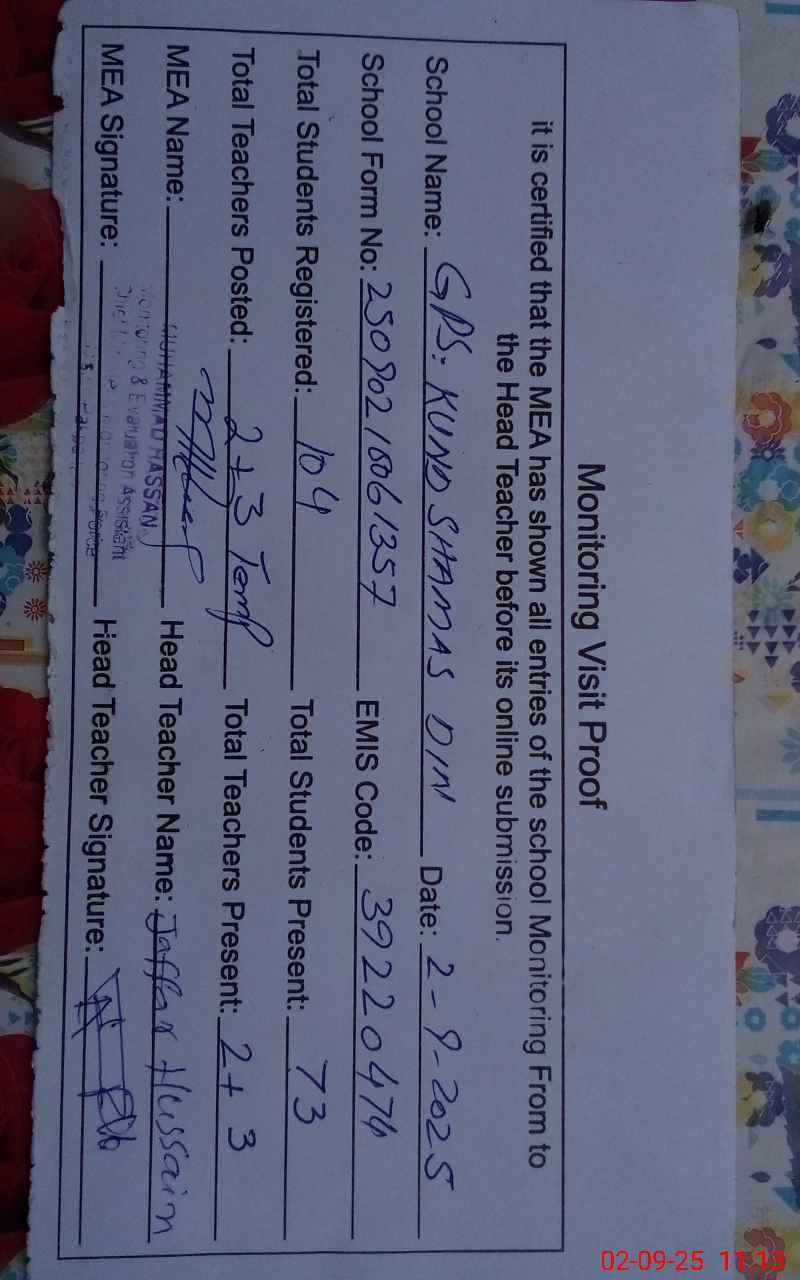 Monitoring Visit Proof
it is certified that the MEA has shown all entries of the school Monitoring From to
the Head Teacher before its online submission.
School Name: GPS: KUND SHAMAS DIN Date: 2-9-2025
School Form No: 250902180061357 EMIS Code: 39220474
Total Students Registered: 104 Total Students Present: 73
Total Teachers Posted: 2+3 Temp Total Teachers Present: 2+3
MEA Name: MUHAMMAD HASSAN Head Teacher Name: Jaffar Hussain
Monitoring & Evaluation Assistant
MEA Signature: Head Teacher Signature:
02-09-25 11:13